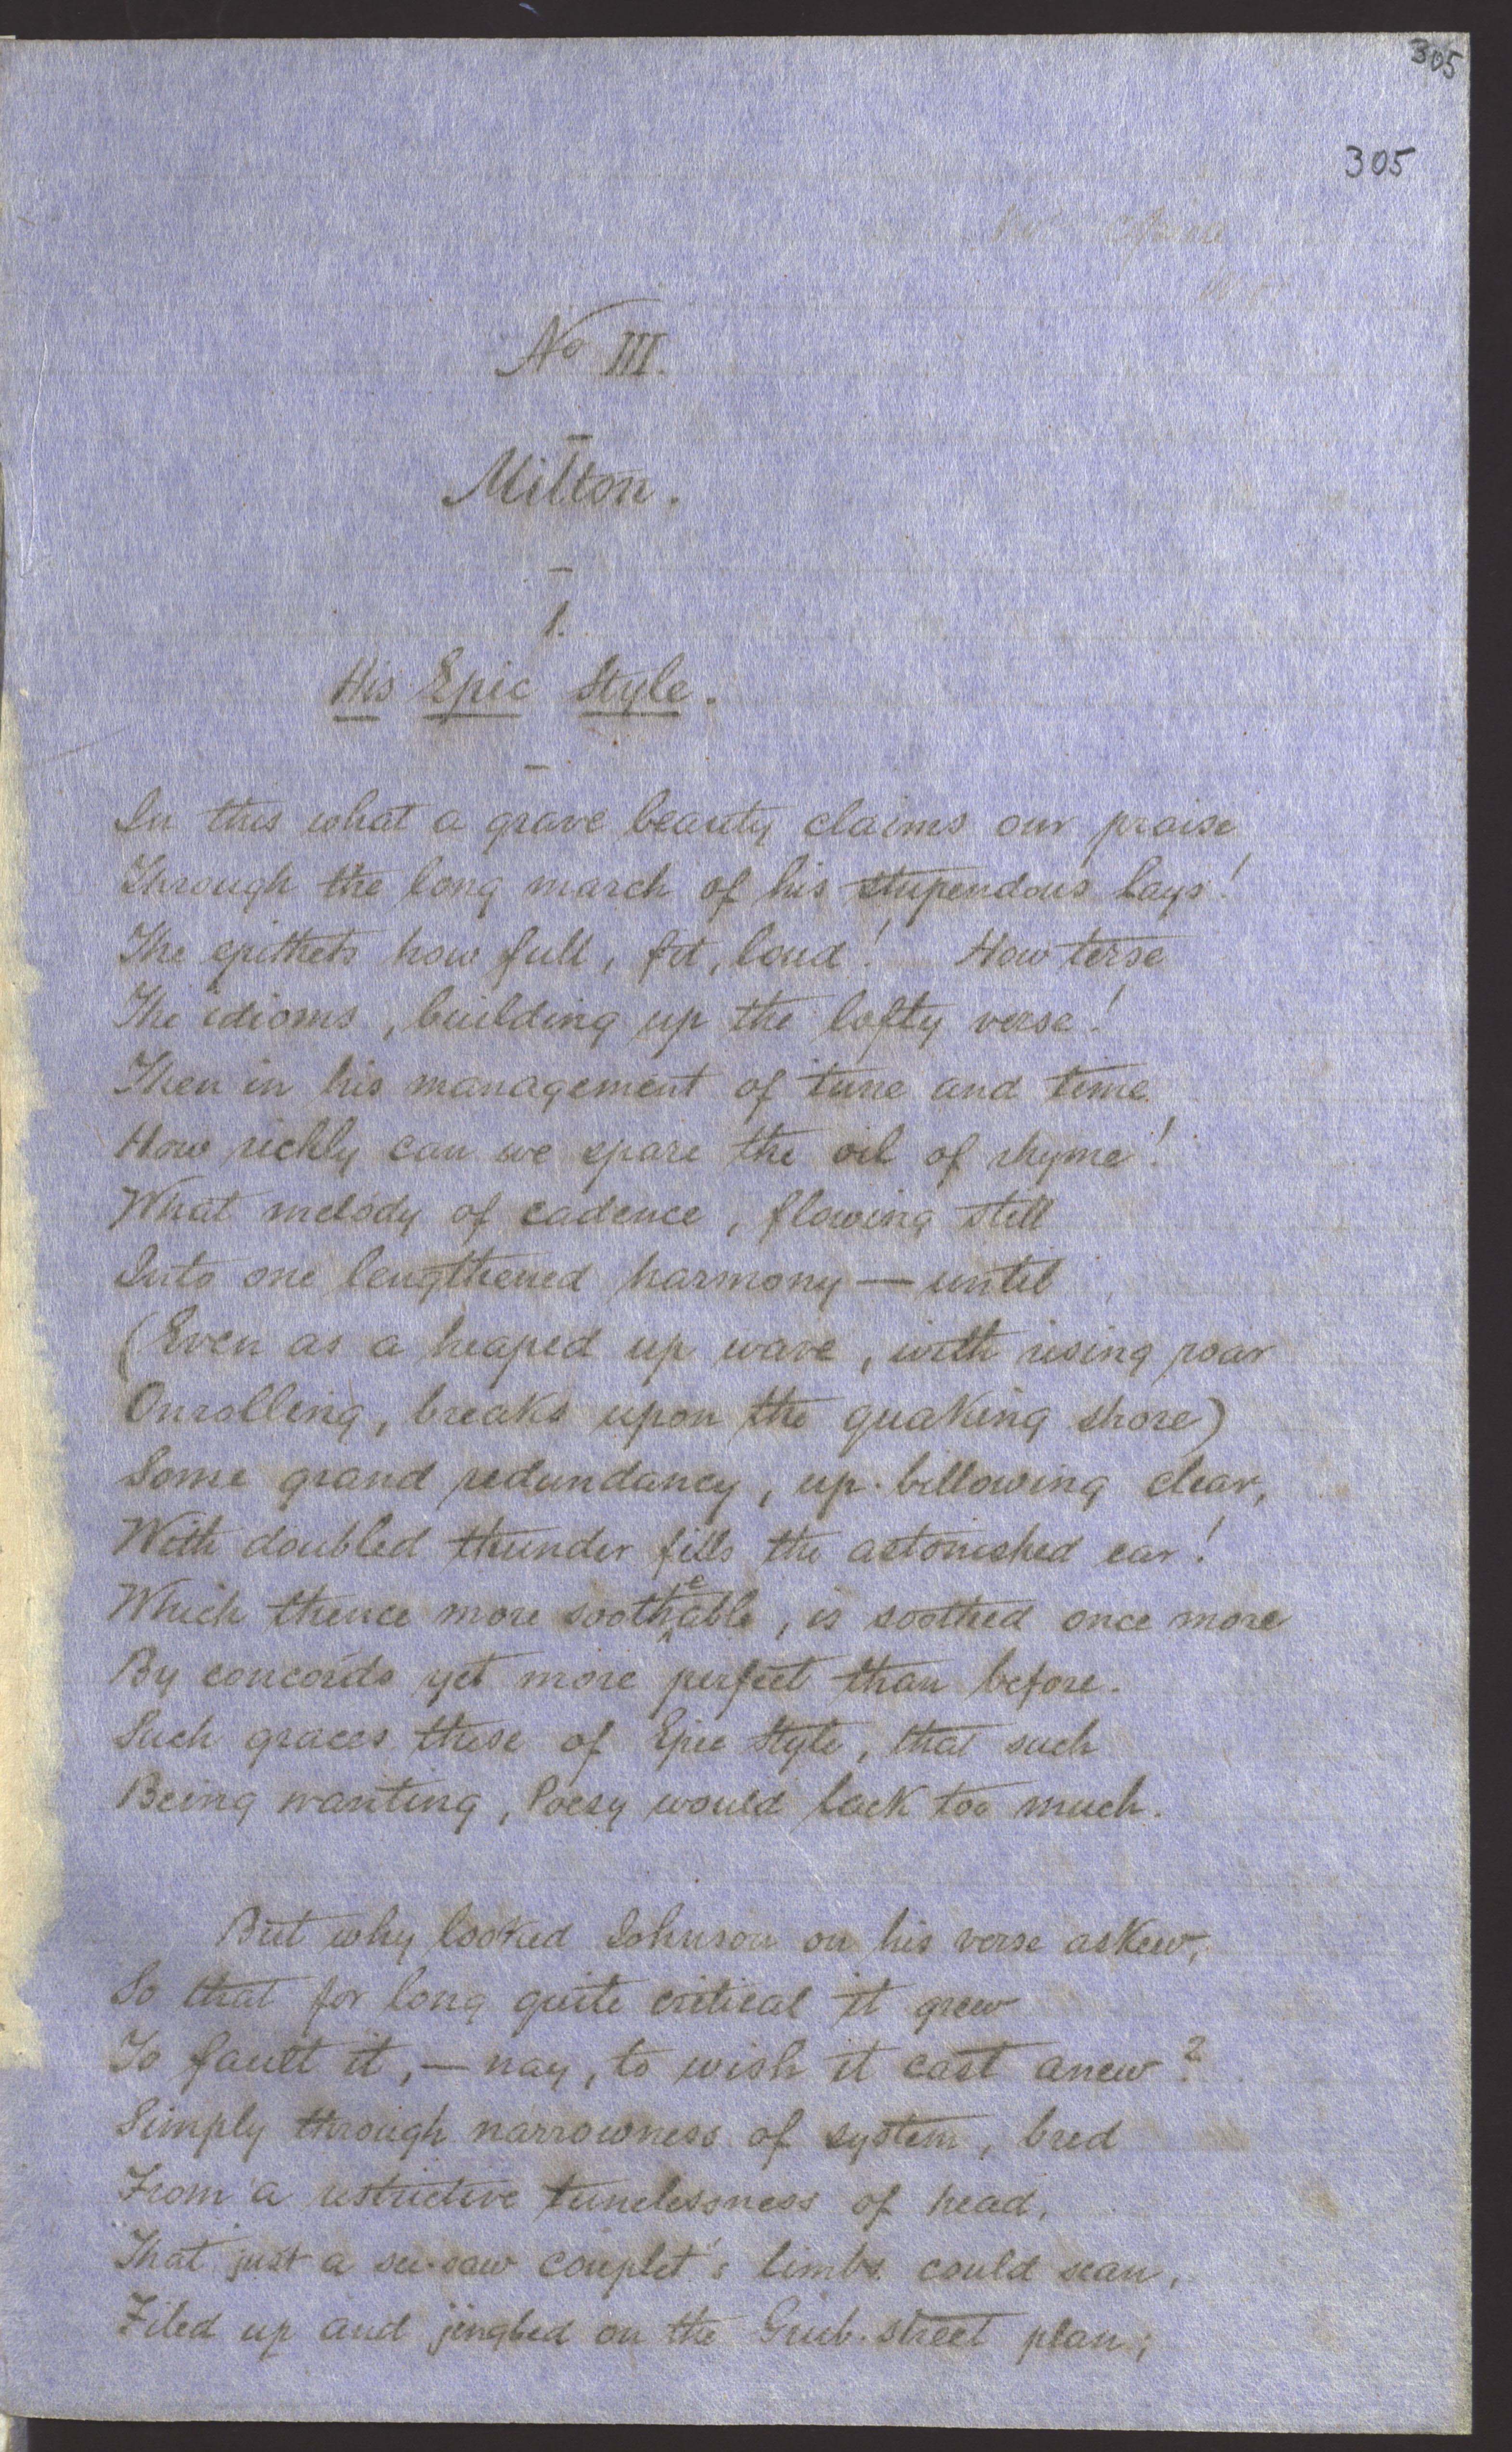 305
305
No III.
Milton.
1.
His Epic Style.
In this what a grave beauty claims our praise
Through the long march of his stupendous lays!
The epithets how full, fit, loud! How terse
The idioms, building up the lofty verse!
Then in his management of tune and time
How richly can we spare the oil of rhyme!
What melody of cadence, flowing still
Into one lengthened harmony — until
(Even as a heaped up wave, with rising roar
Onrolling, breaks upon the quaking shore)
Some grand redundancy, up-billowing clear,
With doubled thunder fills the astonished ear!
Which thence more sootheable, is soothed once more
By concords yet more perfect than before.
Such graces these of Epic Style, that such
Being wanting, Poesy would lack too much.
But why looked Johnson on his verse askew,
So that for long quite critical it grew
To fault it, — nay, to wish it cast anew?
Simply through narrowness of system, bred
From a restrictive tunelessness of head,
That just a see-saw couplet's limbs could scan,
Filed up and jingled on the Grub-street plan;